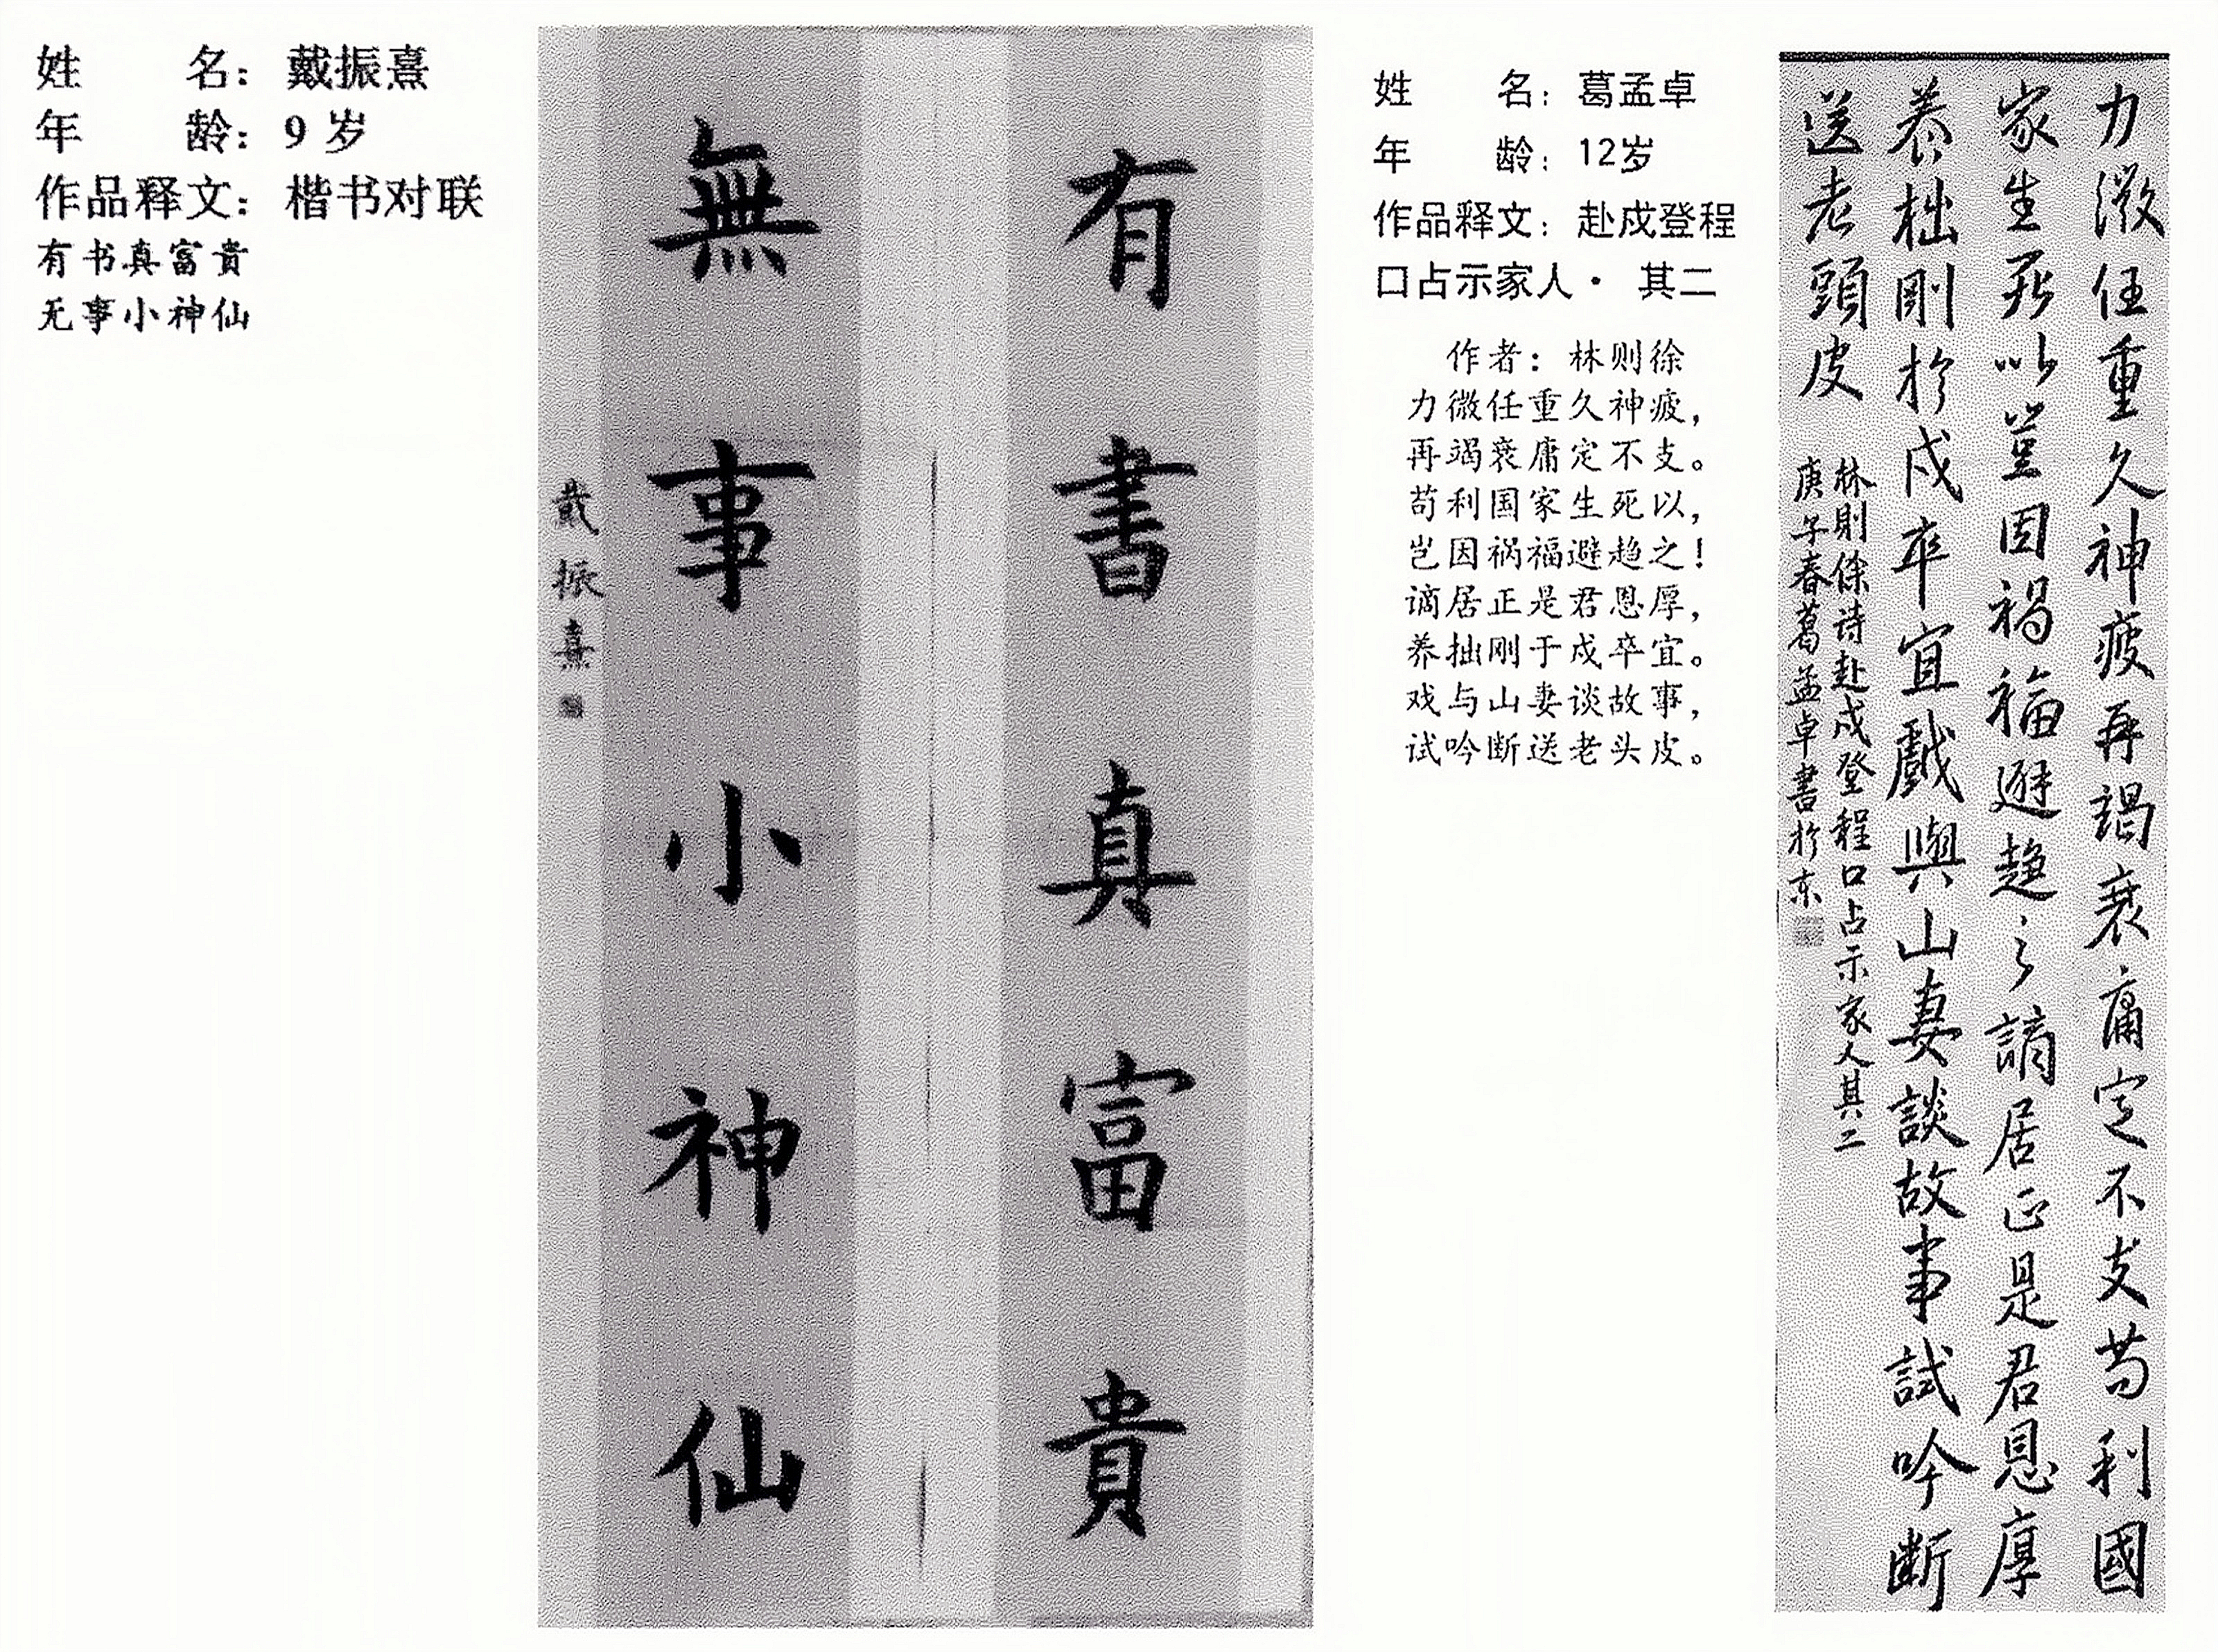 姓 名：戴振熹
年 龄：9 岁
作品释文：楷书对联
有书真富贵
无事小神仙
有書真富貴
無事小神仙
戴振熹
姓 名：葛孟卓
年 龄：12岁
作品释文：赴戍登程
口占示家人· 其二
作者：林则徐
力微任重久神疲，
再竭衰庸定不支。
苟利国家生死以，
岂因祸福避趋之！
谪居正是君恩厚，
养拙刚于戍卒宜。
戏与山妻谈故事，
试吟断送老头皮。
力微任重久神疲再竭衰庸定不支苟利國
家生死以豈因禍福避趋之謫居正是君恩厚
养拙剛於戍卒宜戲與山妻談故事試吟断
送老頭皮
林則徐诗赴戍登程口占示家人其二
庚子春葛孟卓書於东